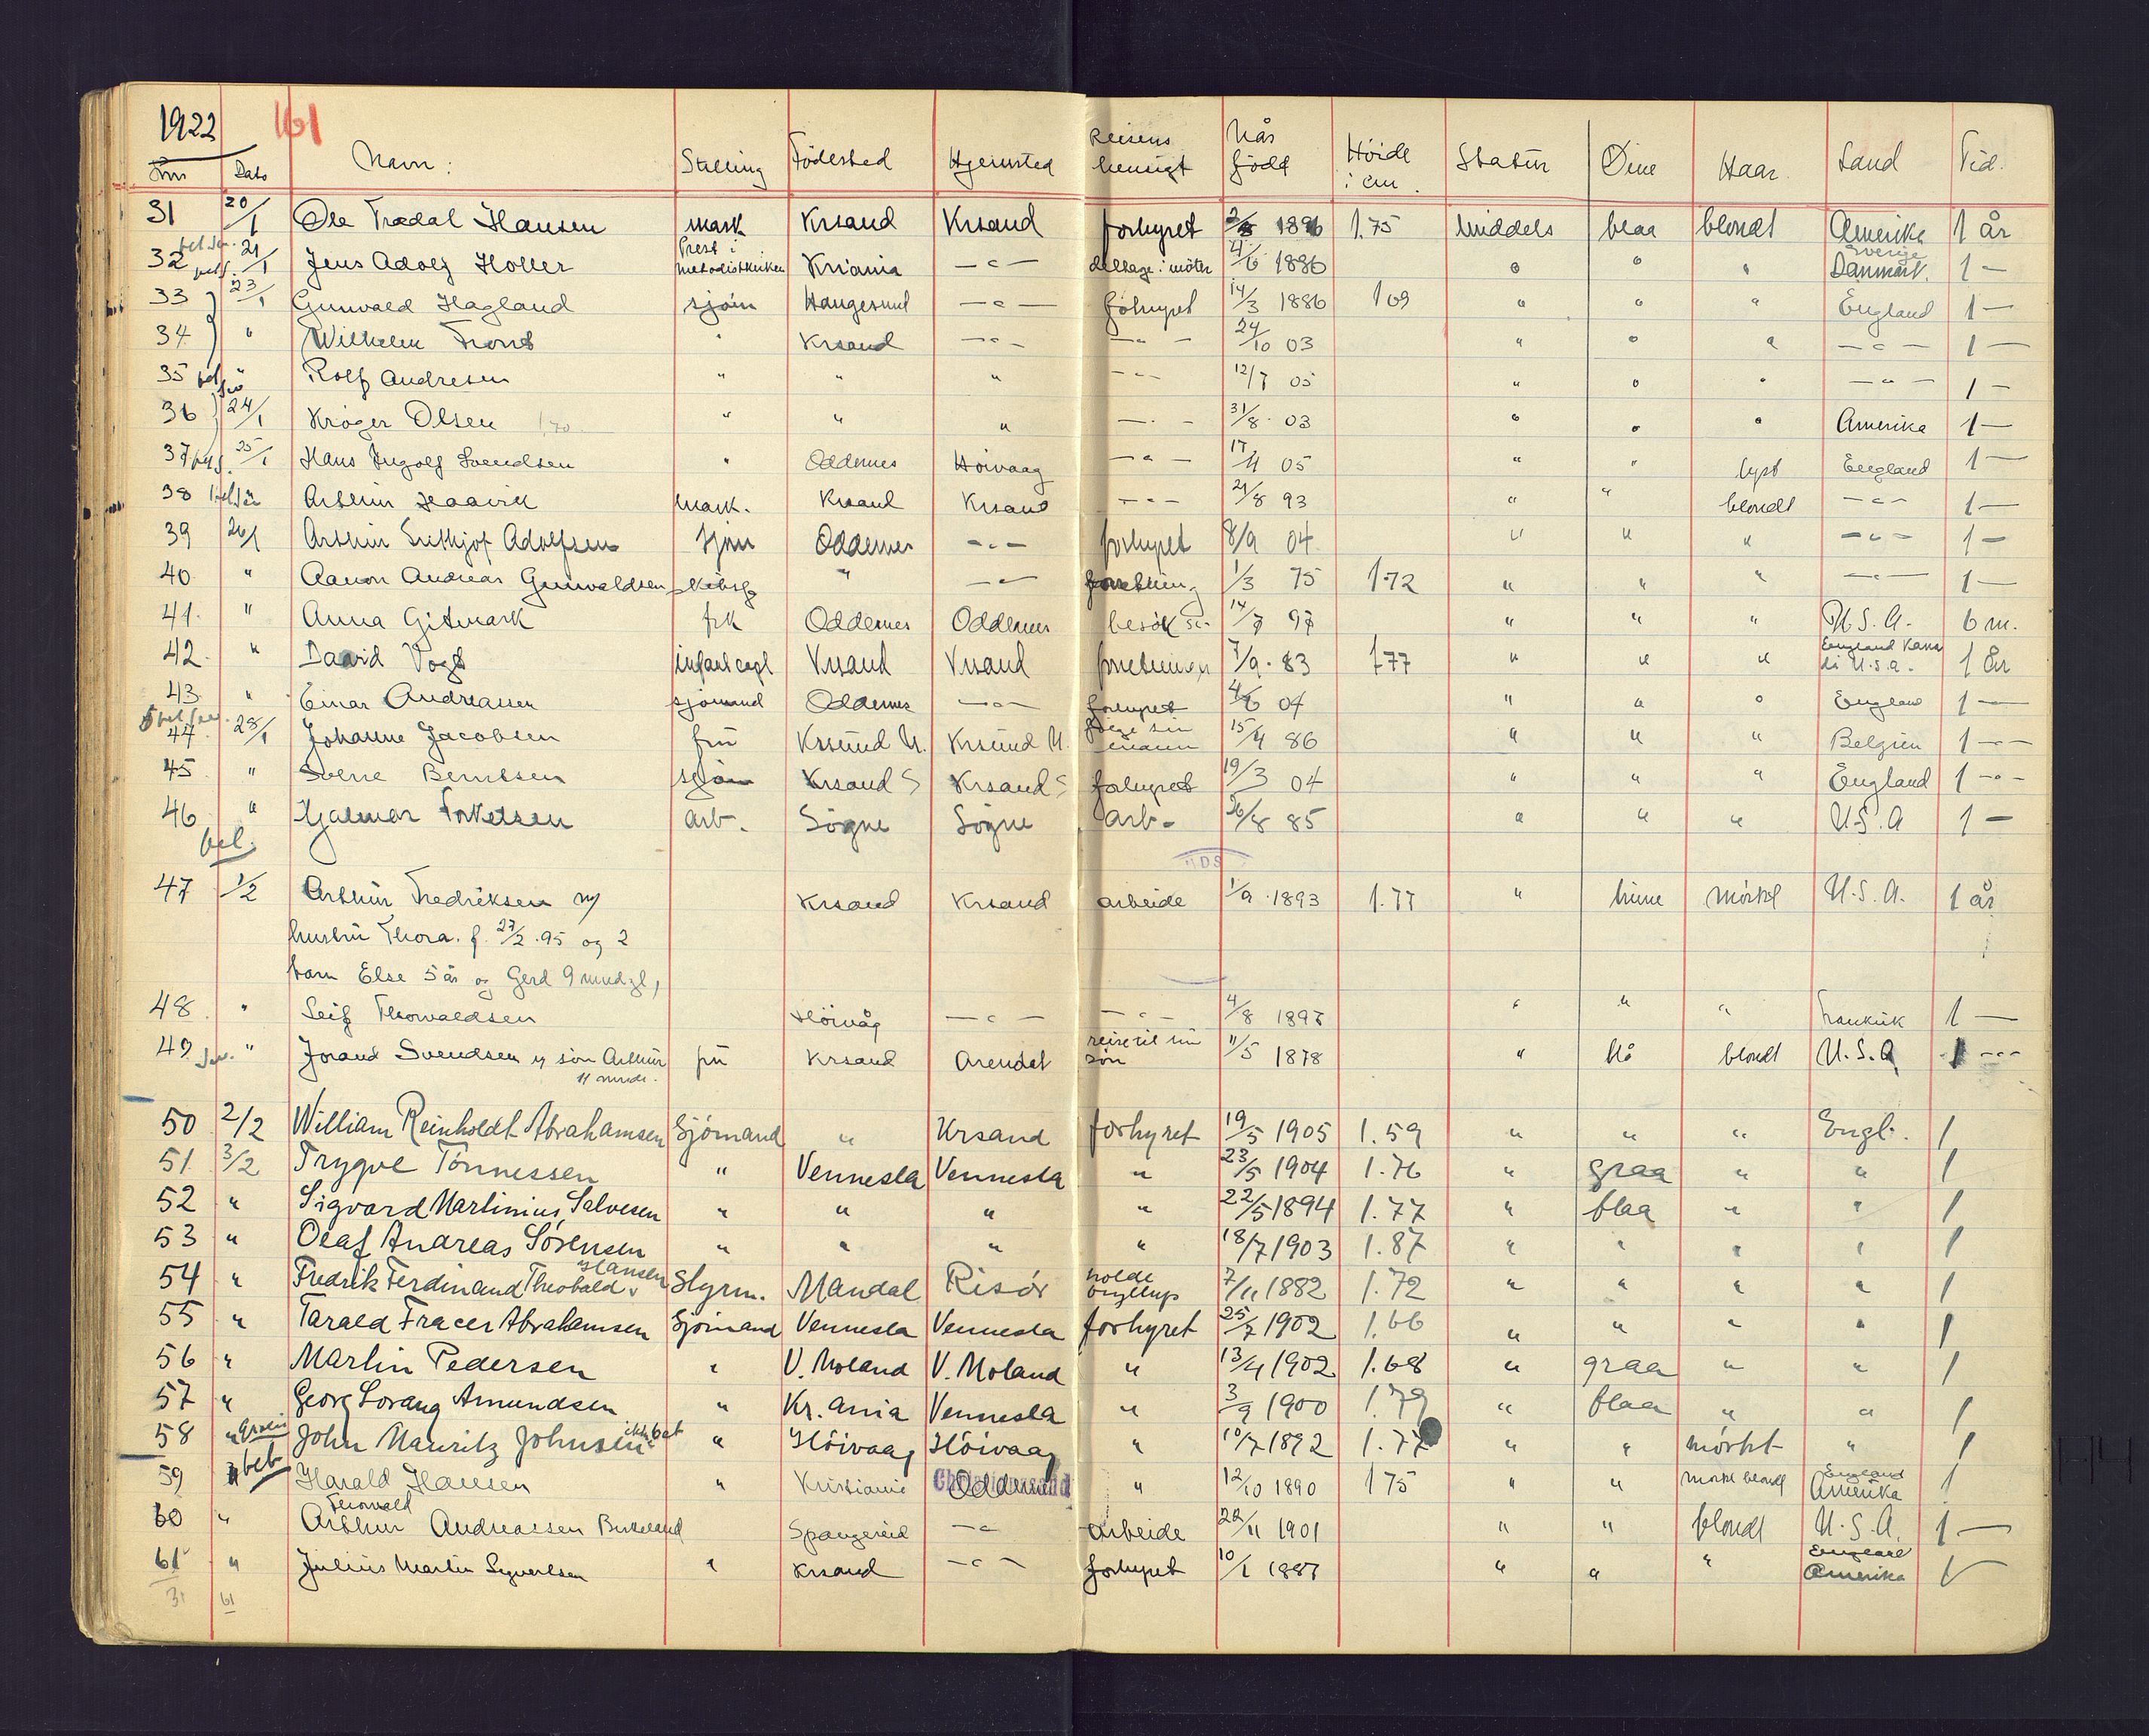 1922 161
Dato Navn: Stilling Födested Hjemsted Reisens hensigt Når född Höide i cm. Statur Öine Haar Land Tid.
31 20/1 Ole Trædal Hansen mask Krsand Krsand forhyret 1.75 Middels blaa blondt Amerika 1 år
32 21/1 Jens Adolf Holler Prest i metodistkirken Kr.ania — " — deltage i möter 4/6 1886 " " " Sverige Danmark. 1 —
33 23/1 Gunvald Hagland sjöm Haugesund — " — forhyret 14/3 1886 169 " " " England 1 —
34 " Wilhelm " Krsand — " — — " — 24/10 03 " " " — " — 1 —
35 bet " Rolf Andresen " " " — " — 12/7 05 " " " — " — 1 —
36 24/1 Kröger Olsen 1,70 " " " — " — 31/8 03 " " " Amerika 1 —
37 25/1 Hans Ingolf Svendsen " Oddernes Höivaag — " — 17/4 05 " " lyst England 1 —
38 Arthur Haavik mask. Krsand Krsand — " — 21/8 93 " " blondt — " — 1 —
39 26/1 Arthur Frithjof Adolfsen sjöm Oddernes — " — forhyret 8/9 04 " " " — " — 1 —
40 " Aanon Andreas Gunvaldsen " — " — 1/3 75 172 " " " — " — 1 —
41. " Anna Gitmark frk Oddernes Oddernes besök 14/7 97 " " " U.S.A. 6 m.
42. " David Vogt Krsand Krsand forretninger 7/9 83 1.77 " " " England Kana da U.S.A. 1 år
43 " Einar Andreassen sjömand Oddernes — " — forhyret 4/6 04 " " " England 1 —
44 28/1 Johanne Jacobsen fru Krsund N. Krsund N. fölge sin mann 15/4 86 " " " Belgien 1 — " —
45 " Sverre Berntsen sjöm Krsand S Krsand S forhyret 19/3 04 " " " England 1 — " —
46 " Hjalmar Torkelsen arb. Sögne Sögne Arb. 26/8 85 " " " U.S.A 1 —
bet.
47 1/2 Arthur Fredriksen m/ Krsand Krsand arbeide 1/9 1893 1.77 " brune mörkt U.S.A. 1 år
hustru Thora. f. 27/2 .95 og 2
barn Else 5 år og Gerd 9 mndgl,
48 " Leif Thorvaldsen Höivåg — " — — " — 4/8 1897 " " " Frankrik 1 —
49 " Jorand Svendsen m/ sön Arthur 11 mndr. fru Krsand Arendal reise til sin sön 11/5 1878 " blå blondt U.S.A 1 - - -
50 2/2 William Reinholdt Abrahamsen Sjömand " Krsand forhyret 19/5 1905 1.59 " " " Engl. 1
51 3/2 Trygve Tönnessen " Vennesla Vennesla " 23/5 1904 1.76 " graa " " 1
52 " Sigvard Martinius Salvesen " " " " 22/5 1894 1.77 " blaa " " 1
53 " Olaf Andreas Sörensen " " " " 18/7 1903 1.87 " " " " 1
54 " Fredrik Ferdinand Theobald Hansen Styrm. Mandal Risör holde bryllup 7/11 1882 1.72 " " " " 1
55 " Tarald Fracer Abrahamsen Sjömand Vennesla Vennesla forhyret 25/7 1902 1.66 " " " " 1
56 " Martin Pedersen " V. Moland V. Moland " 13/4 1902 1.68 " graa " " 1
57 " Georg Sorang Amundsen " Kr.ania Vennesla " 3/9 1900 1.79 " blaa " " 1
58 " John Mauritz Johnsen ikke bet " Höivaag Höivaag " 10/7 1892 1.77 " " mörkt " 1
59 bet Harald Hansen " Kristiania Oddernes " 12/10 1890 175 " " mörkt blondt England Amerika 1
60 " Arthur Thorvald Andreassen Birkeland Spangereid — " arbeide 22/11 1901 " " blondt U.S.A. 1 —
61 " Julius Martin Syvertsen " Krsand — " — forhyret 10/1 1887 " " " England Amerika 1
31 61